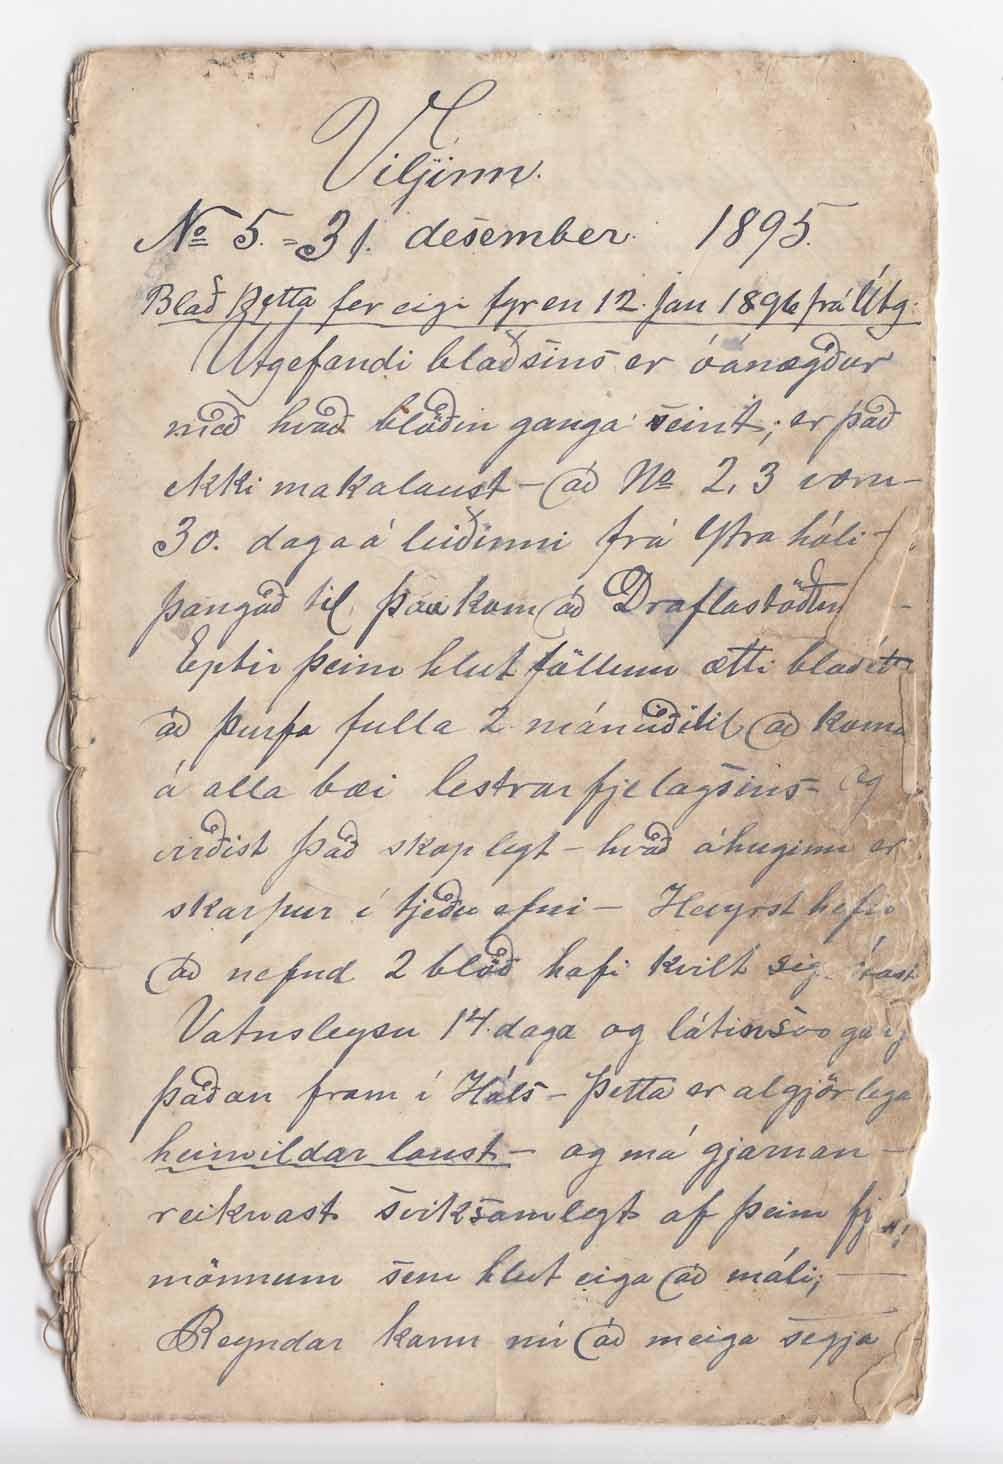 Viljinn.
No 5. = 31. desember. 1895.
Blað þetta fer eigi fyr en 12. jan 1896 frá Útg.
Utgefandi blaðsins er óánægður
með hvað blöðin ganga seint; er það
ekki makalaust – að No 2, 3 voru –
30. daga á leiðinni frá Ytra hóli –
þangað til þau kom að Draflastöðum –
Eptir þeim hlut föllum ætti blaðið
að þurfa fulla 2 mánuði til að koma
á alla bæi lestrarfjelagsins – og
virðist það skoplegt – hvað áhuginn er
skarpur í tjeðu efni – Heyrst hefir
að nefnd 2 blöð hafi kvilt sig
Vatnsleysu 14. daga og látin svo ganga
þaðan fram í Háls – Þetta er algjörlega
heimildarlaust – og má gjarnan –
reiknast sviksamlegt af þeim
mönnum sem hlut eiga að máli; –
Reyndar kann nú að meiga segja